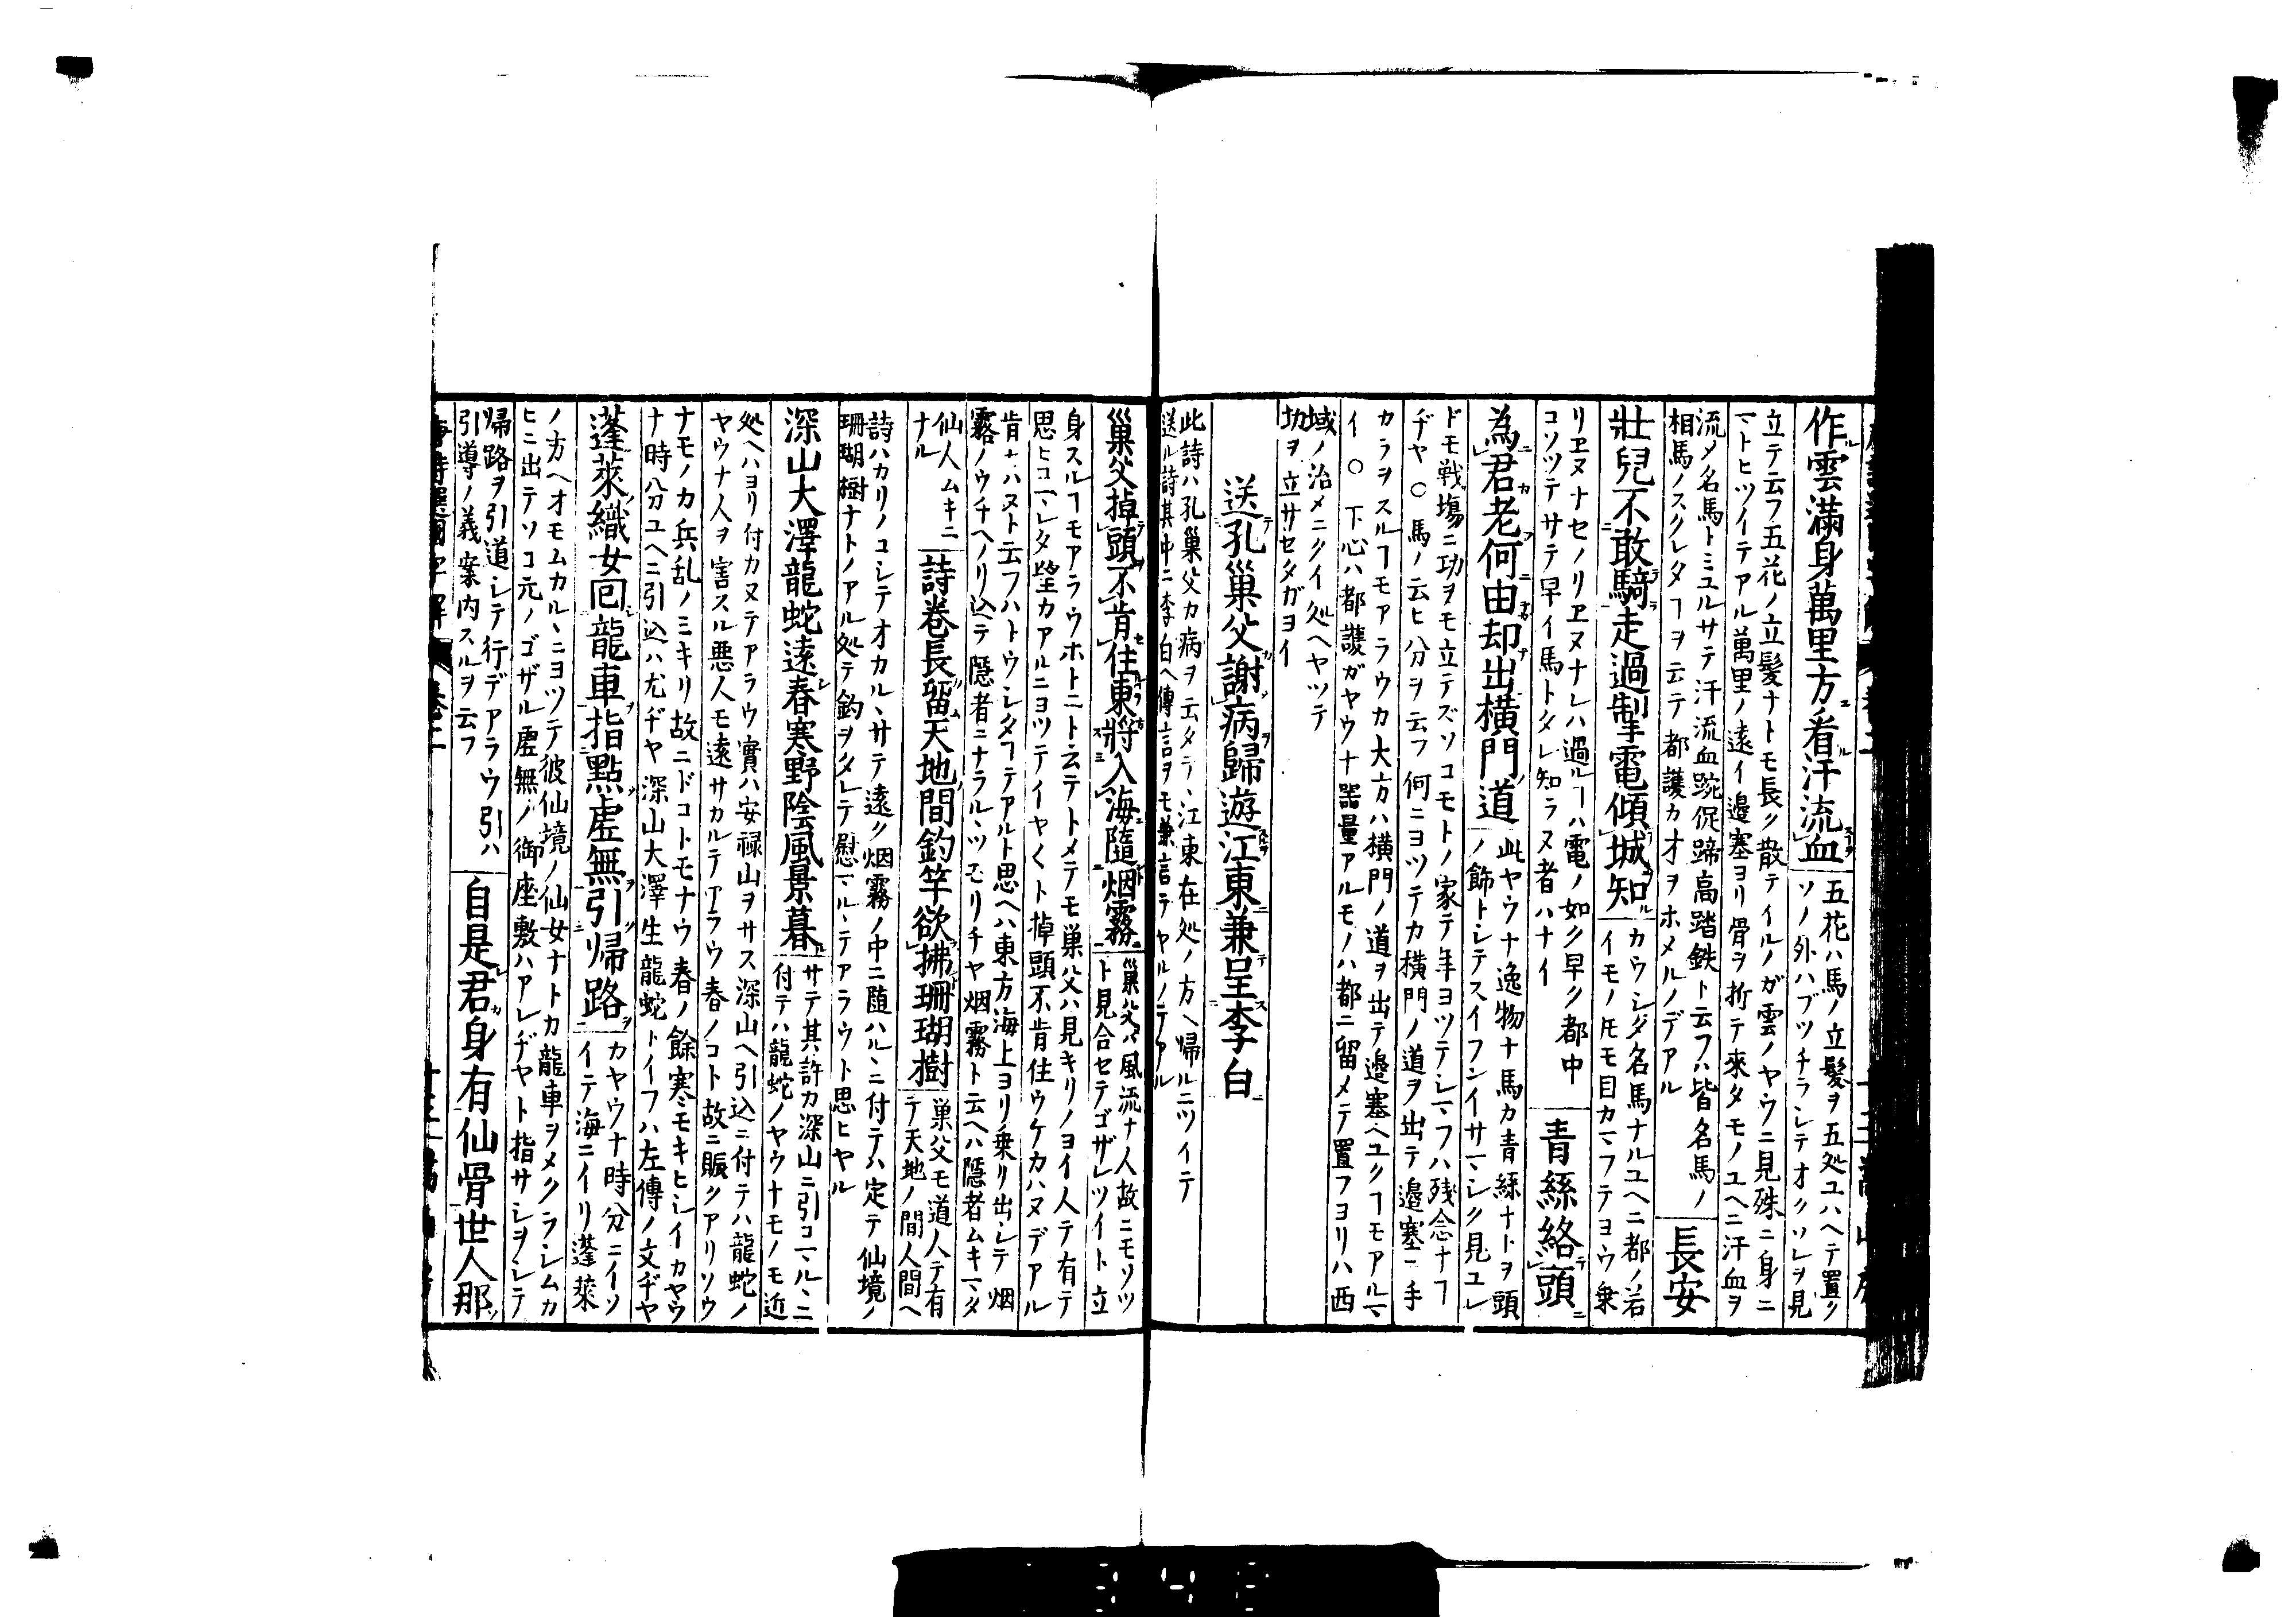 作雲滿身萬里方看汗流血
五花ハ馬ノ立髮ヲ五処ユハヘテ置ク
ソノ外ハブツチラシテオクソレヲ見
立テ云フ五花ノ立髮ナトモ長ク散テイルノガ雲ノヤウニ見殊ニ身ニ
マトヒツイテアル萬里ノ遠イ邊塞ヨリ骨ヲ折テ來タモノユヘニ汗血ヲ
流メ名馬トミユルサテ汗流血踠促蹄高踏鉄ト云フハ皆名馬ノ
相馬ノスクレタヿヲ云テ都護カ才ヲホメルノデアル
長安
壯兒不敢騎走過掣電傾城知
カウシタ名馬ナルユヘニ都ノ若
イモノ𪜈モ目カマフテヨウ乗
リヱヌナセノリヱヌナレハ過ルヿハ電ノ如ク早ク都中
コソツテサテ早イ馬トタレ知ラヌ者ハナイ
青絲絡頭
為君老何由却出横門道
此ヤウナ逸物ナ馬カ青絲ナトヲ頭
ノ飾トシテスイフンイサマシク見ユレ
ドモ戦塲ニ功ヲモ立テズソコモトノ家テ年ヨツテシマフハ残念ナヿ
ヂヤ○馬ノ云ヒ分ヲ云フ何ニヨツテカ横門ノ道ヲ出テ邊塞ニ手
カラヲスルヿモアラウカ大方ハ横門ノ道ヲ出テ邊塞ヘユクヿモアルマ
イ○下心ハ都護ガヤウナ器量アルモノハ都ニ留メテ置フヨリハ西
域ノ治メニクイ処ヘヤツテ
功ヲ立サセタガヨイ
送孔巢父謝病歸遊江東兼呈李白
此詩ハ孔巢父カ病ヲ云タテ、江東在処ノ方ヘ帰ルニツイテ
送ル詩其中ニ李白ヘ傳言ヲモ兼言テヤルノテアル
巢父掉頭不肯住東將入海隨烟霧
巢父ハ風流ナ人故ニモツツ
ト見合セテゴザレツイト立
身スルヿモアラウホトニト云テトメテモ巣父ハ見キリノヨイ人テ有テ
思ヒコマレタ望カアルニヨツテイヤくト掉頭不肯住ウケカハヌデアル
肯ナハヌト云フハトウシタヿテアルト思ヘハ東方海上ヨリ乗リ出シテ烟
霧ノウチヘノリ込テ隠者ニナラルヽツモリチヤ烟霧ト云ヘハ隠者ムキマタ
仙人ムキニ
ナル
詩巻長留天地間釣竿欲拂珊瑚樹
巣父モ道人テ有
テ天地ノ間人間ヘ
詩ハカリノコシテオカルヽサテ遠ク烟霧ノ中ニ随ハルヽニ付テハ定テ仙境ノ
珊瑚樹ナトノアル処テ釣ヲタレテ慰マルヽテアラウト思ヒヤル
深山大澤龍蛇遠春寒野陰風景暮
サテ其許カ深山ニ引コマルヽニ
付テハ龍蛇ノヤウナモノモ近
処ヘハヨリ付カヌテアラウ實ハ安禄山ヲサス深山ヘ引込ニ付テハ龍蛇ノ
ヤウナ人ヲ害スル悪人モ遠サカルテアラウ春ノコト故ニ賑クアリソウ
ナモノカ兵乱ノミキリ故ニドコトモナウ春ノ餘寒モキヒシイカヤウ
ナ時分ユヘニ引込ハ尤ヂヤ深山大澤生龍蛇トイフハ左傳ノ文ヂヤ
蓬萊織女囘龍車指點虚無引帰路
カヤウナ時分ニイソ
イテ海ニイリ蓬萊
ノ方ヘオモムカルヽニヨツテ彼仙境ノ仙女ナトカ龍車ヲメクラシムカ
ヒニ出テソコ元ノゴザル虚無ノ御座敷ハアレヂヤト指サシヲシテ
帰路ヲ引道シテ行デアラウ引ハ
引導ノ義案内スルヲ云フ
自是君身有仙骨世人那